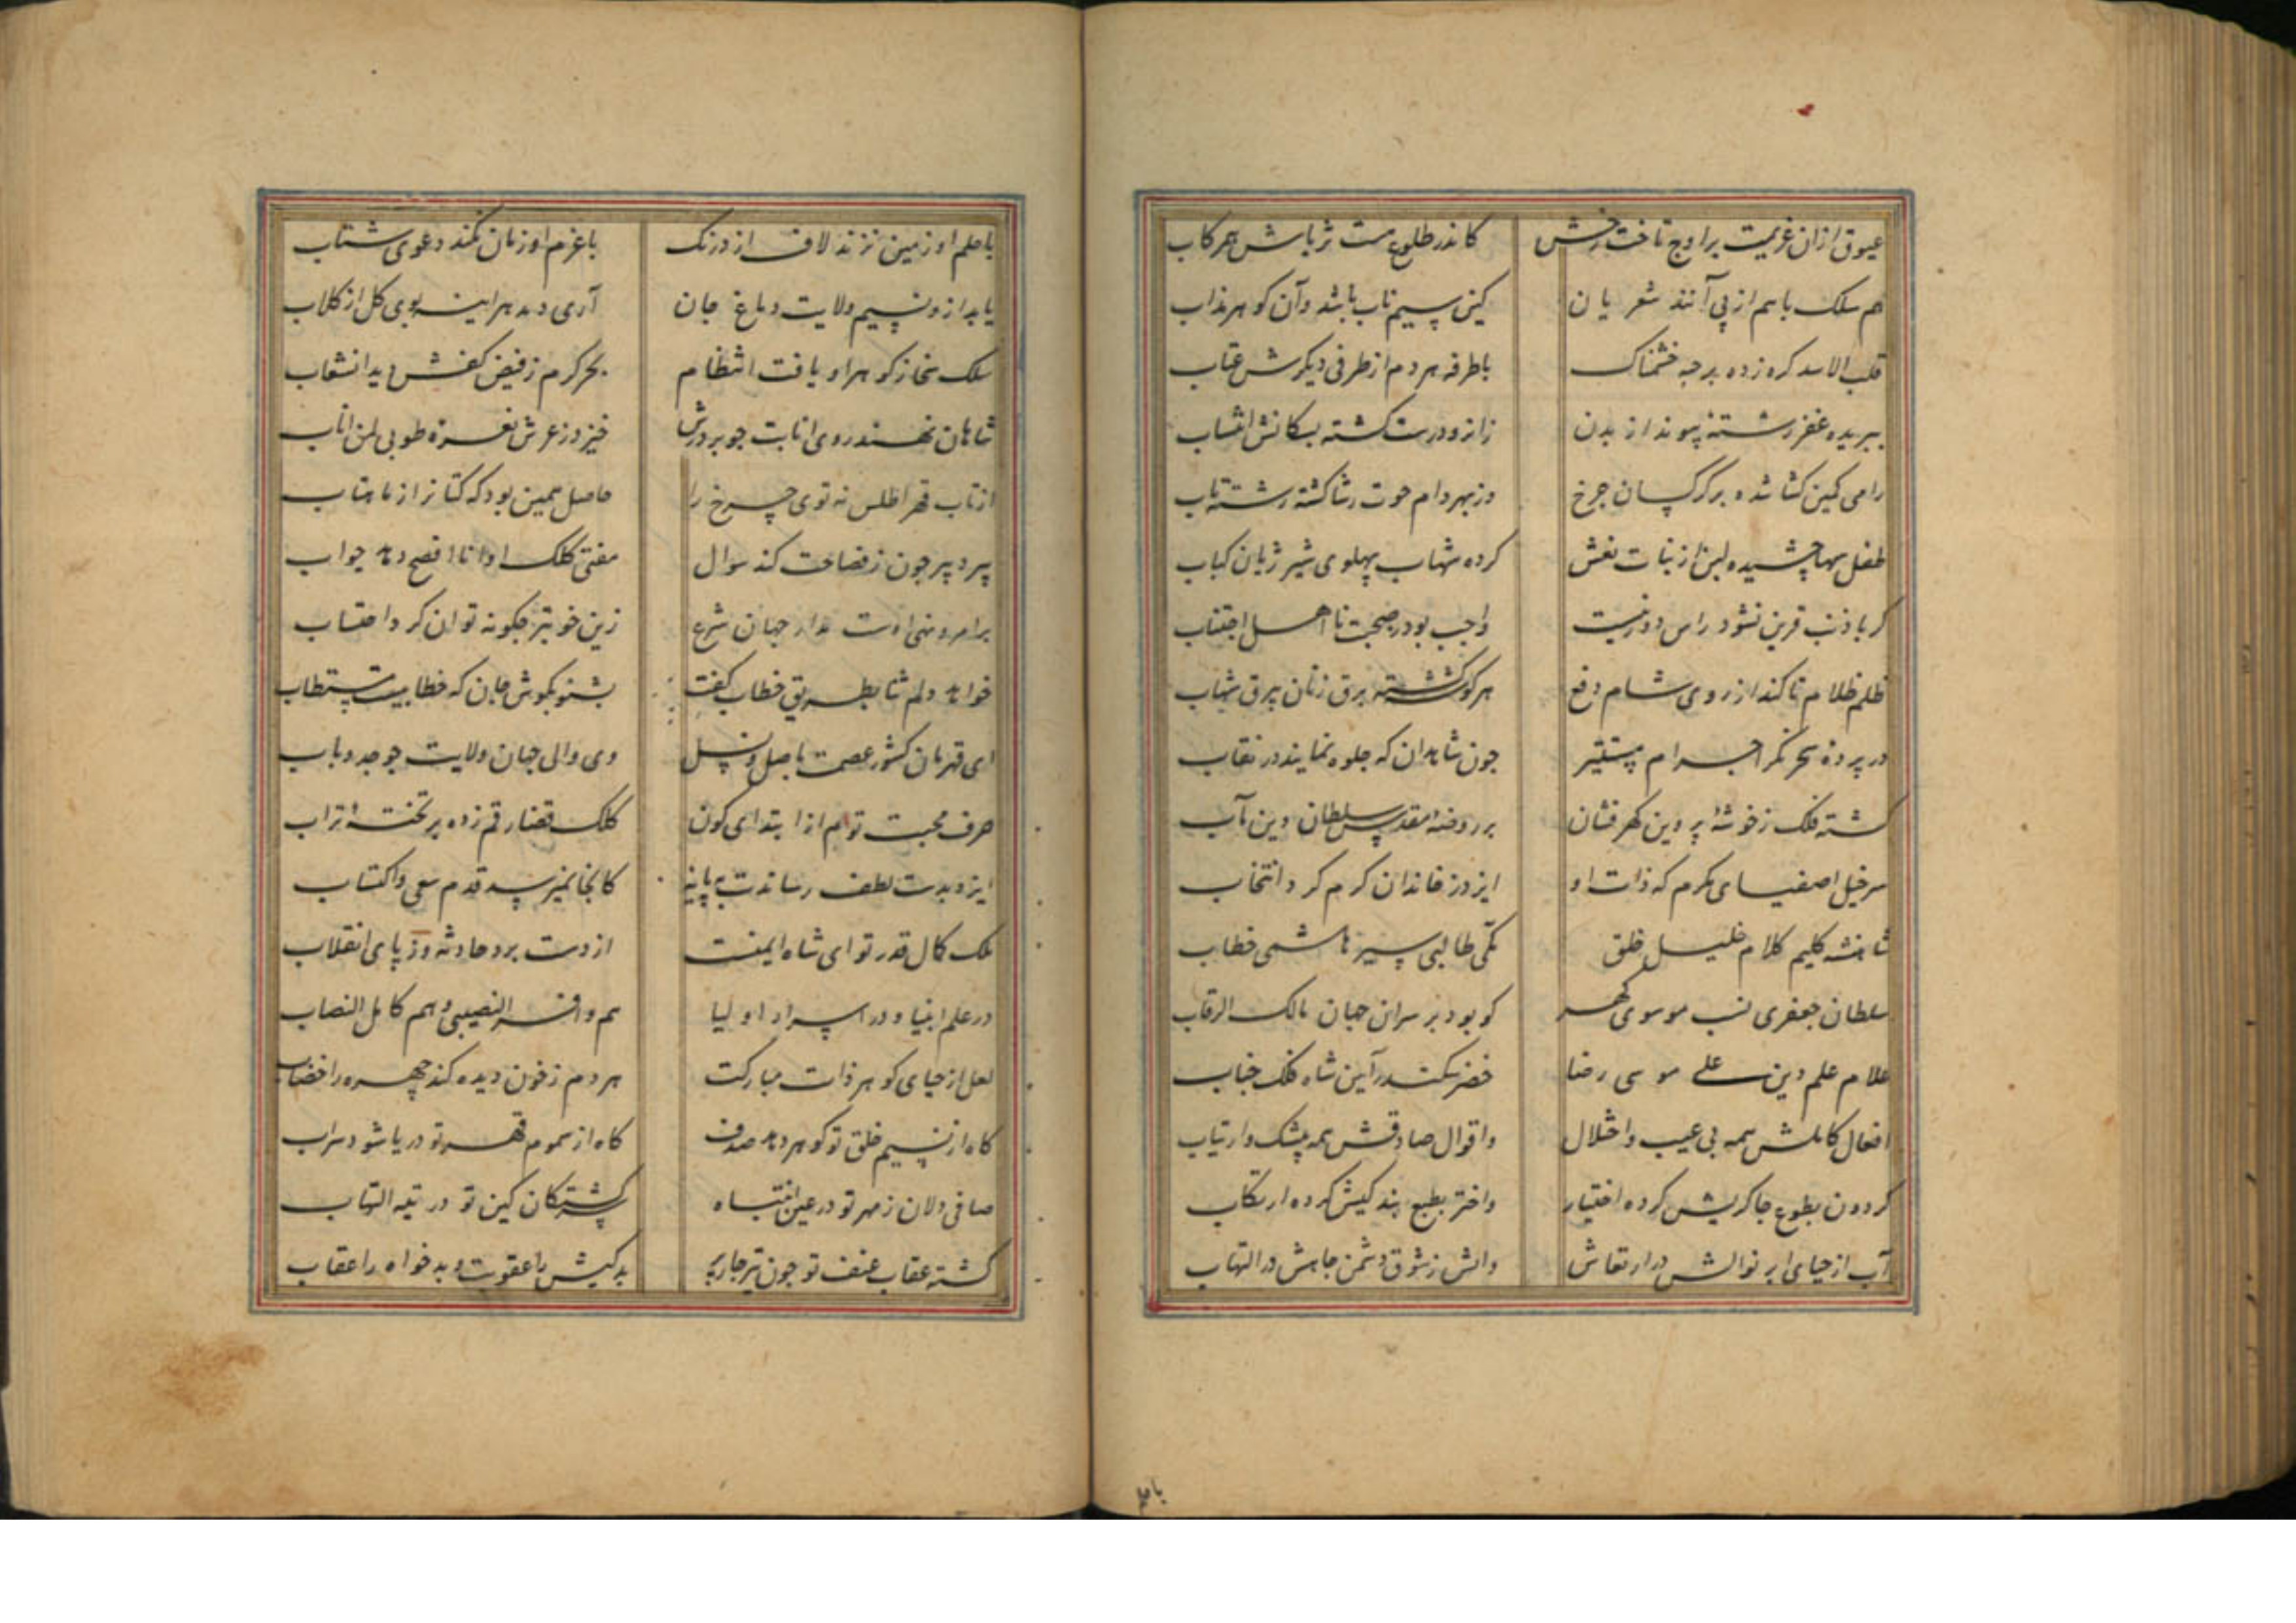 عیوق ازان عزیمت بر اوج تاخت رخش کاندر طلوع هست ثریاش هم رکاب
هم سلک باهم از پی آنند شعریان کین سیم ناب باشد وآن کوهر مذاب
قلب الاسد کره زده بر جبه خشمناک باطرفه هر دم از طرفی دیکرش عتاب
ببریده غفر رشته پیوند از بدن زانرو درست کشته بسکانش انتساب
رامی کمین کشا شده بر کرکسان چرخ وز بهر دام حوت رشا کشته رشته تاب
طفل سها چشیده لبن از بنات نعش کرده شهاب پهلوی شیر ژیان کباب
کر با ذنب قرین نشود راس دور نیست واجب بود ز صحبت نااهل اجتناب
ظلم ظلام تا کند از روی شام دفع هر کوشه کشته برق زنان بیرق شهاب
در پرده سحر نکر اجرام مستنیر چون شاهدان که جلوه نمایند در نقاب
کشته فلک ز خوشه پروین کهرفشان بر روضه مقدس سلطان دین مآب
سرخیل اصفیای مکرم که ذات او ایزد ز خاندان کرم کرد انتخاب
شاهنشه کلیم کلام خلیل خلق مکی طالبی سیر هاشمی خطاب
سلطان جعفری نسب موسوی کهر کو بود بر سران جهان مالک الرقاب
علام علم دین علی موسی رضا خضر سکندر آیین شاه فلک جناب
افعال کاملش همه بی عیب و اختلال واقوال صادقش همه بیشک و ارتیاب
کردون بطوع چاکریش کرده اختیار واختر بطبع بندکیش کرده ارتکاب
آب از حیای ابر نوالش در ارتعاش واتش ز شوق دشمن جاهش در التهاب
با حلم
با حلم او زمین نزند لاف از درنک با عزم او زمان نکند دعوی شتاب
یابد ازو نسیم ولایت دماغ جان آری دهد هراینه بوی کل از کلاب
سلک سخا ز کوهر او یافت انتظام بحر کرم ز فیض کفش دید انشعاب
شاهان نهند روی انابت چو بر درش خیزد ز عرش نغمزه طوبی لمن اناب
از تاب قهر اطلس نه توی چرخ را حاصل همین بود که کتانرا ز ماهتاب
پیر دبیر چون ز فصاحت کند سوال مفتی کلک او انا افصح دهد جواب
بر امر و نهی اوست مدار جهان شرع زین خوبتر چکونه توان کرد احتساب
خواهد دلم ثنا بطریق خطاب کفت بشنو بکوش جان که خطابیست مستطاب
ای قهرمان کشور عصمت باصل و نسل وی والی جهان ولایت چو جد و باب
حرف محبت تو هم از ابتدای کون کلک قضا رقم زده بر تخته تراب
ایزد بدست لطف رساندت بپایه کانجا نمیرسد قدم سعی و اکتساب
ملک کمال قدر تو ای شاه ایمنست از دست برد حادثه وز پای انقلاب
در علم انبیا و در اسرار اولیا هم وافر النصیبی و هم کامل النصاب
لعل از حیای کوهر ذات مبارکت هر دم ز خون دیده کند چهره را خضاب
کاه از نسیم خلق تو کوهر دهد صدف کاه از سموم قهر تو دریا شود سراب
صافی دلان ز مهر تو در عین انتباه سرکشتکان کین تو در تیه التهاب
کشته عقاب عنف تو چون تیر چارپر بدکیش را عقوبت و بدخواه را عقاب